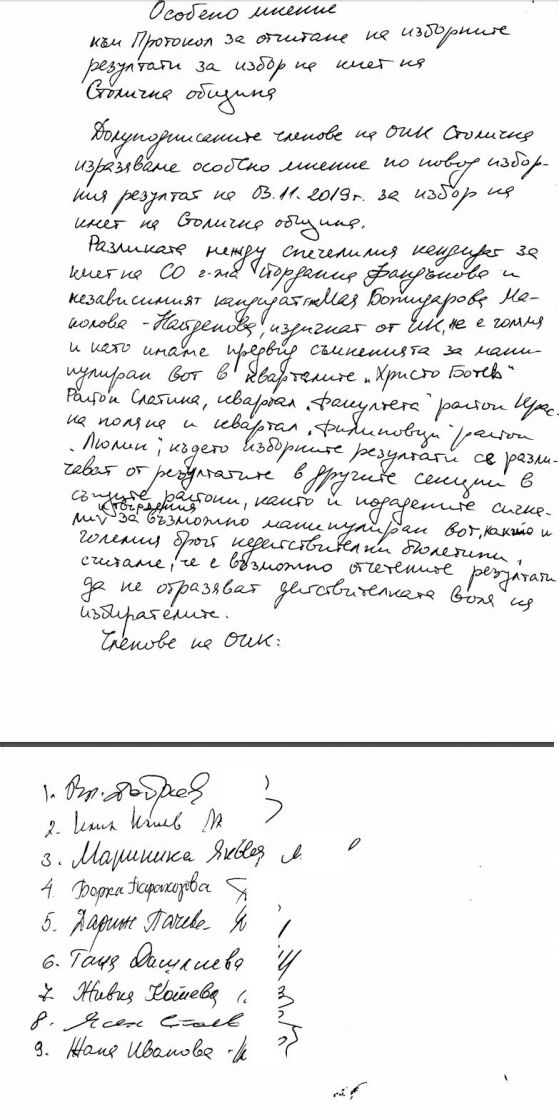 Особено мнение
към Протокол за отчитане на изборните
резултати за избор на кмет на
Столична община
Долуподписаните членове на ОИК Столична
изразяваме особено мнение по повод избор-
ния резултат на 03.11.2019г. за избор на
кмет на Столична община.
Разликата между спечелилия кандидат за
кмет на СО г-жа Йорданка Фандъкова и
независимият кандидат Мая Божидарова Ма-
нолова - Найденова, издигнат от ИК, не е голяма
и като имаме предвид съмненията за мани-
пулиран вот в кварталите „Христо Ботев"
Район Слатина, квартал „Факултета" район Крас-
на поляна и квартал „Филиповци" район
„Люлин", където изборните резултати се разли-
чават от резултатите в другите секции в
същите райони, както и подадените сигна-
ли и твърдения за възможно манипулиран вот, както и
големия брой недействителни бюлетини,
считаме, че е възможно отчетените резултати
да не отразяват действителната воля на
избирателите.
Членове на ОИК:
1.
2. Илия Илиев
3. Мариника
4. Борка
5. Пачева
6. Таня
7. Живка
8. Ясен
9. Жана Иванова